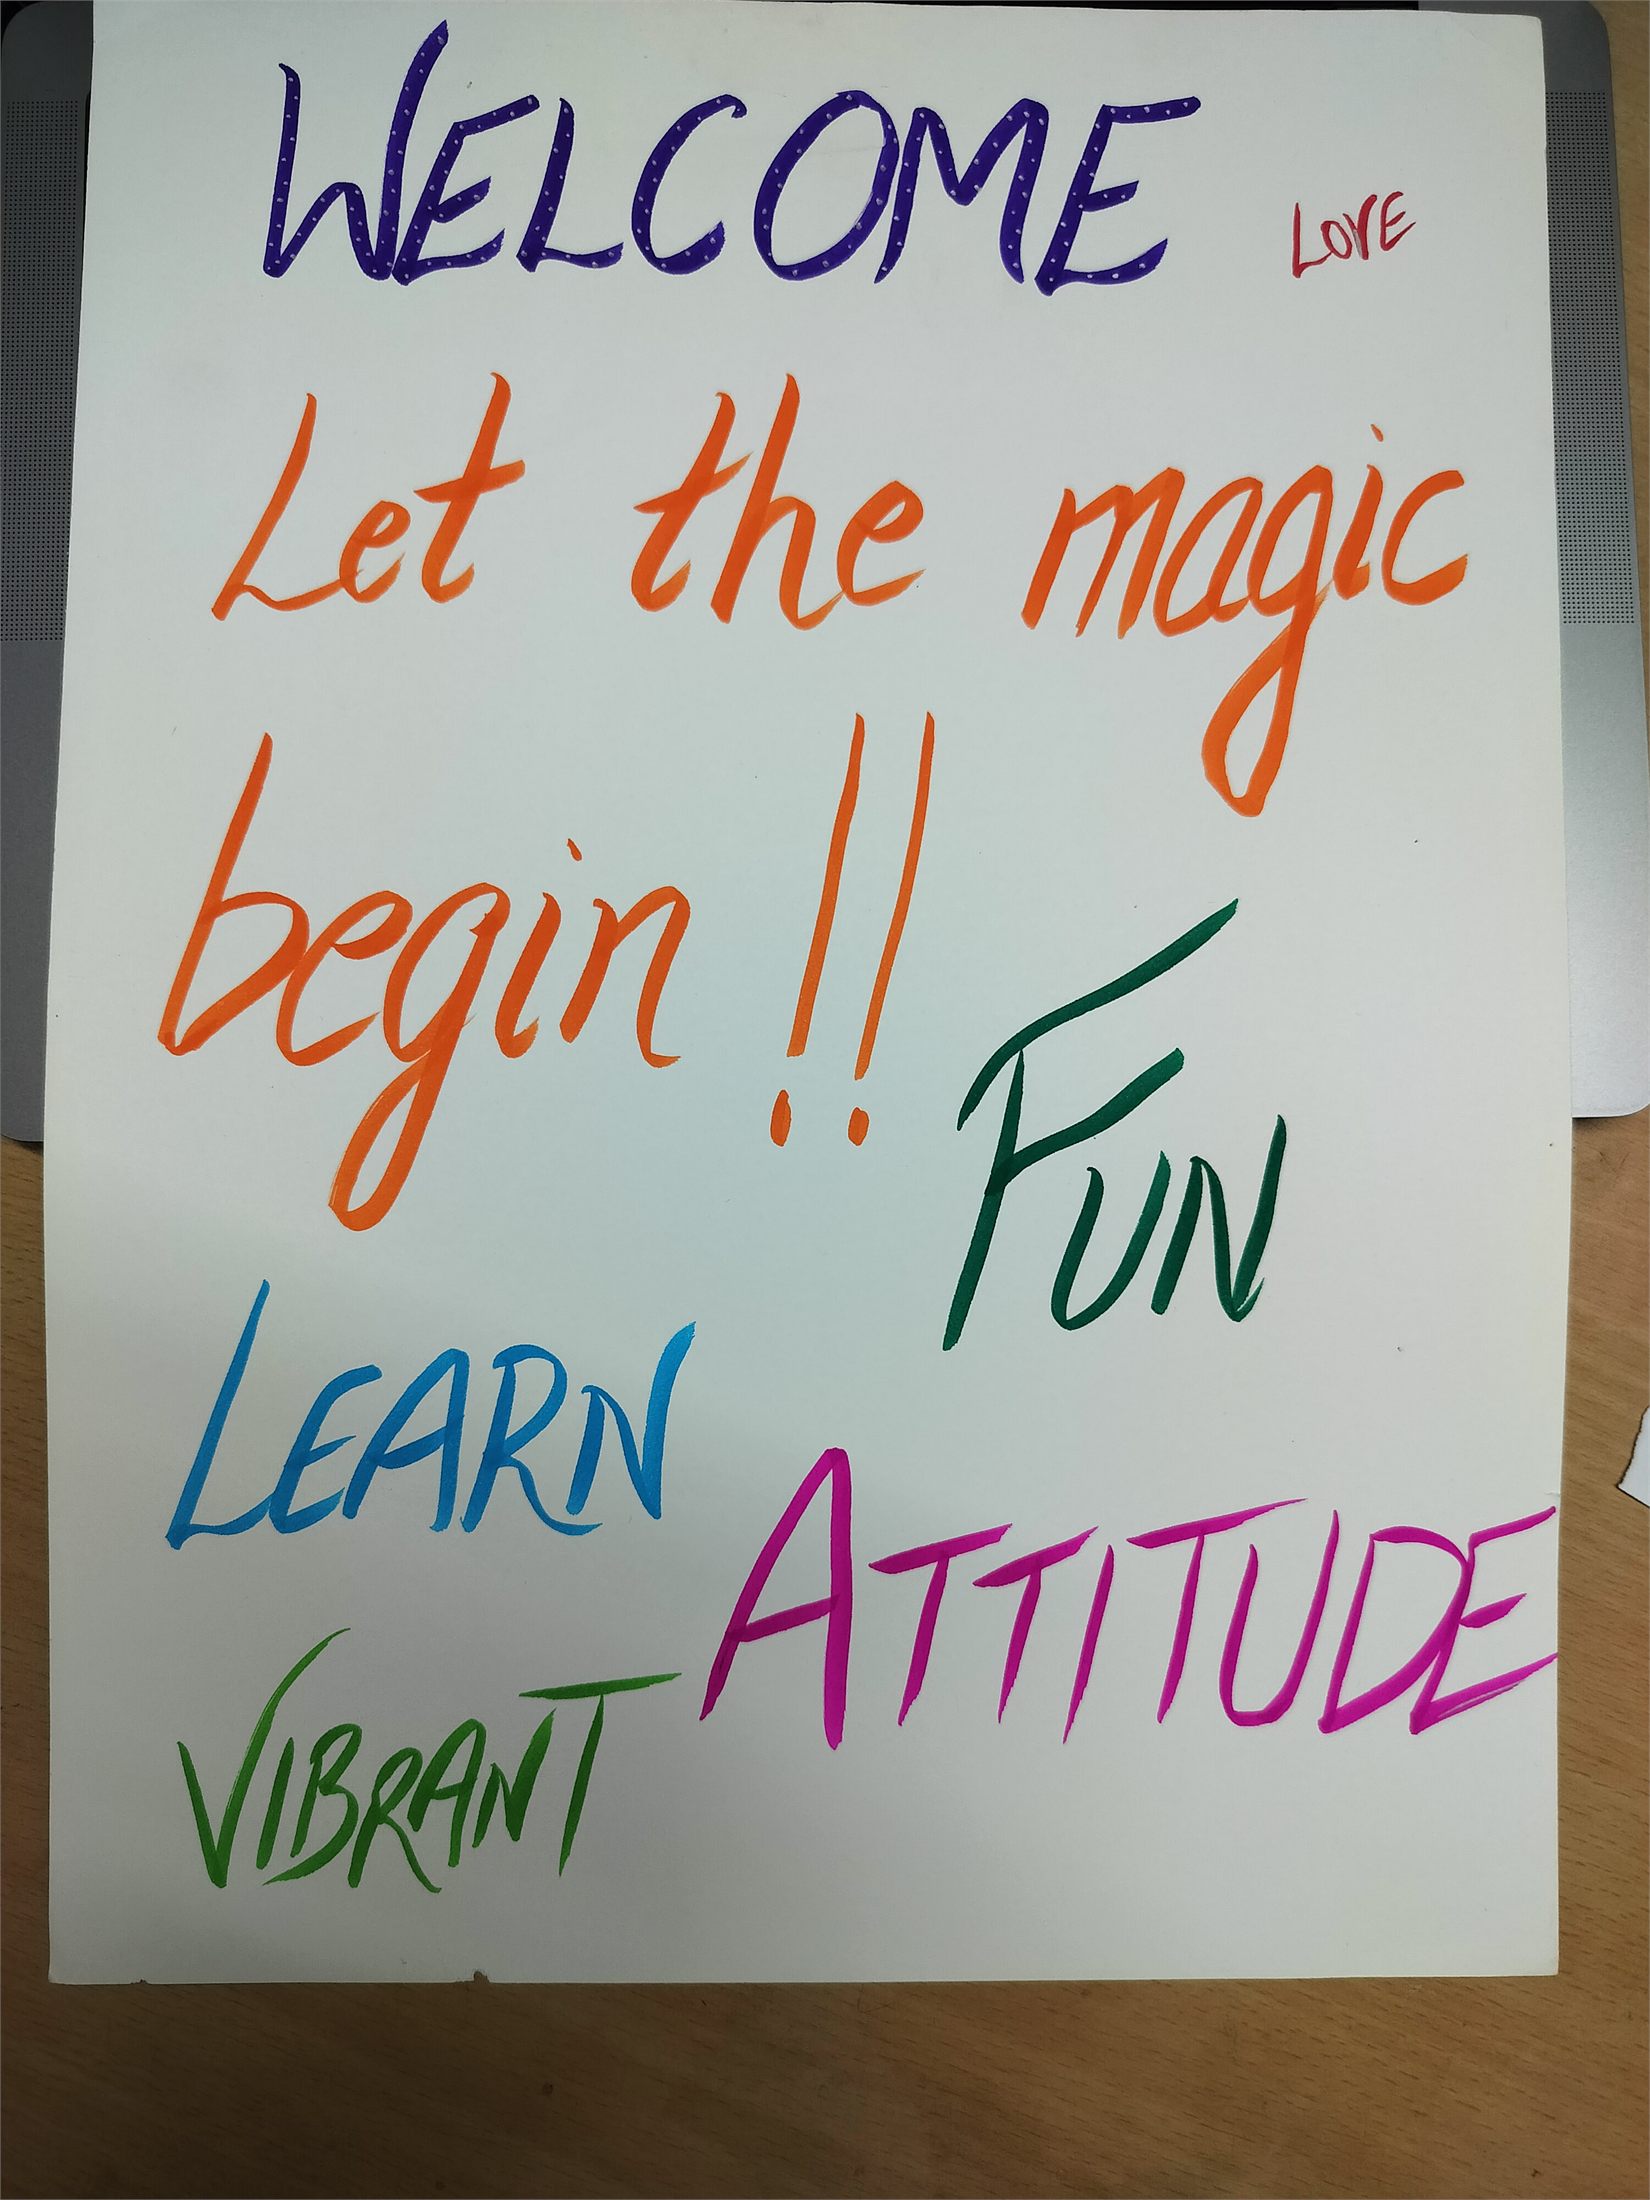 WELCOME
LOVE
Let the magic
begin !!
FUN
LEARN
ATTITUDE
VIBRANT